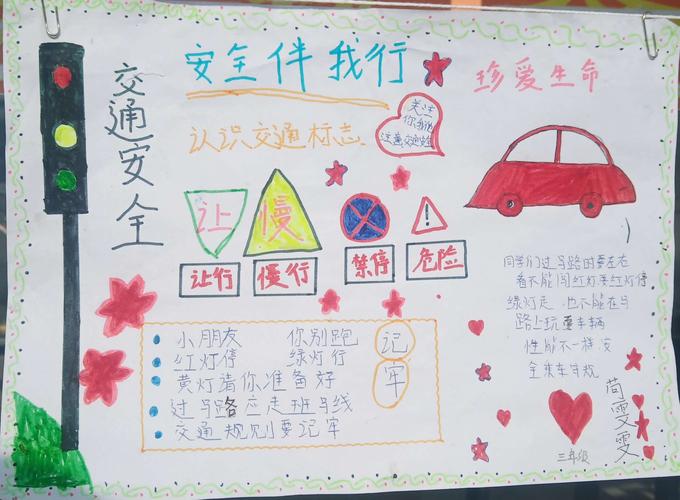 交通安全
安全伴我行
珍爱生命
认识交通标志
关注
你我他
注意交通安全
让
慢
让行
慢行
禁停
危险
小朋友 你别跑
红灯停 绿灯行
黄灯请你准备好
过马路应走班马线
交通规则要记牢
记
牢
同学们过马路时要左右
看不能闯红灯要红灯停
绿灯走 也不能在马
路上玩耍车辆
性能不一样安
全乘车
三年级
雯雯